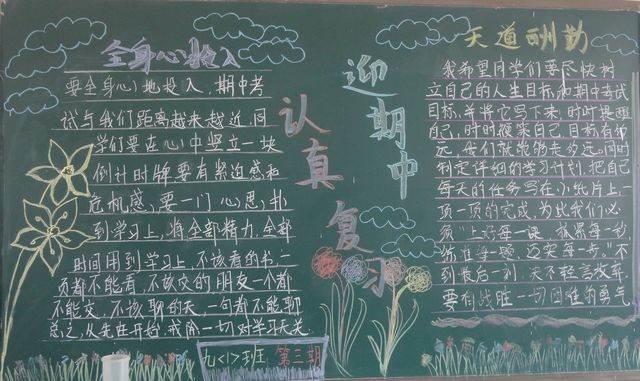 全身心投入
要全身心地投入，期中考
试与我们距离越来越近，同
学们要在心中竖立一块
倒计时牌要有紧迫感和
危机感，要一门心思，扑
到学习上，将全部精力，全部
时间用到学习上，不该看的书一
页都不能看，不该交的朋友一个都
不能交，不该聊的天，一句都不能聊
总之，从先在开始，戒除一切对学习无关
迎期中
认真复习
天道酬勤
我希望同学们要尽快树
立自己的人生目标和期中考试
目标，并将它写下来，时时提醒
自己，时时鞭策自己，目标有多
远，我们就能够走多远。同时
制定详细的学习计划，把自己
每天的任务写在小纸片上，一
项一项的完成，为此我们必
须"上好每一课，
每一题，迈实每一步。"不
到最后一刻，天不轻言放弃，
要有战胜一切困难的勇气
九<1>班 第三期